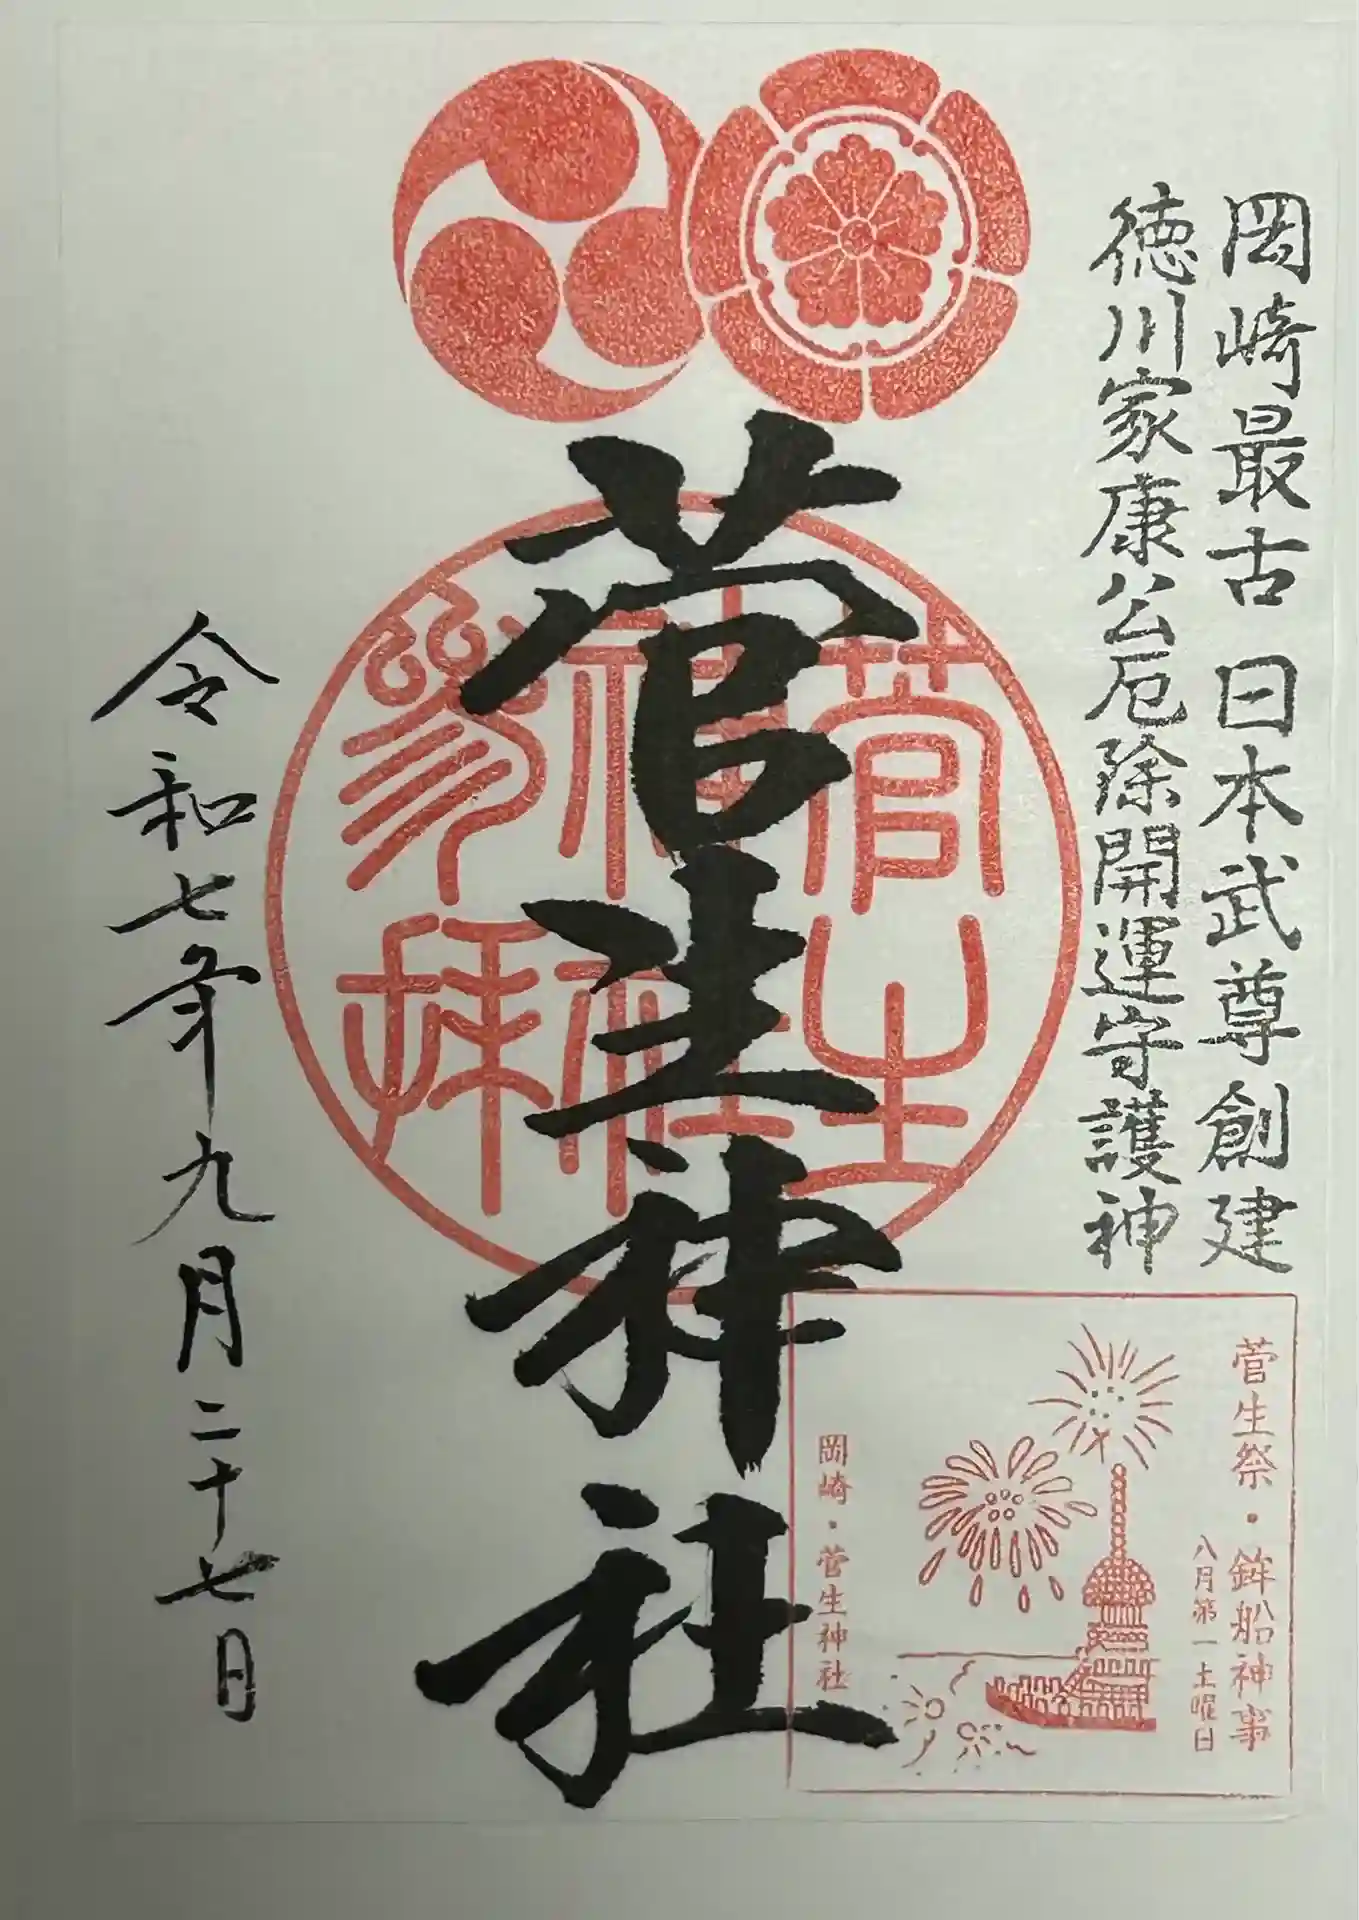 岡崎最古 日本武尊創建
徳川家康公厄除開運守護神
菅生神社
菅生
神社
参拝
令和七年九月二十七日
菅生祭・鉾船神事
八月第一土曜日
岡崎・菅生神社